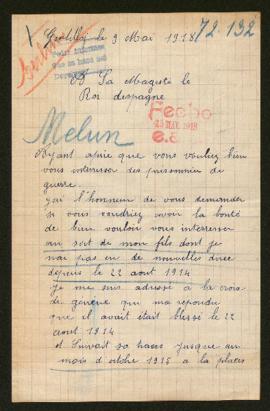 le 3 Mai 1918
72.132
A Sa Magesté le
Roi despagne
Fecho
MAI 1918
e.a
Melun
Ayant apris que vous vouliez bien
vous interesser des prisonnier de
guerre.
jai l'honneur de vous demander
si vous voudriez avoir la bonté
de bien vouloir vous interresser
au sort de mon fils dont je
nai pas eu de nouvelles
depuis le 22 aout 1914
je me suis adressé a la croix
de geneve qui ma repondu
que il avait était blessé le 22
aout 1914
et Suivait jusque au
mois d'octobre 1915 a la places